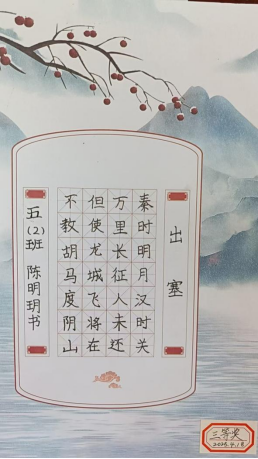 出塞
秦时明月汉时关
万里长征人未还
但使龙城飞将在
不教胡马度阴山
五(2)班 陈明玥书
三等奖